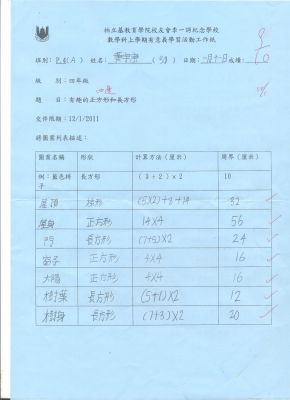 柏立基教育學院校友會李一諤紀念學校
數學科上學期有意義學習活動工作紙
班別：P.4(A) 姓名： 日期：一月十一日 成績：
級 別：四年級
題 目：有趣的正方形和長方形
交件限期：12/1/2011
將圖案列表描述：
圖案名稱 形狀 計算方法（厘米） 周界（厘米）
例：藍色椅子 長方形 （3+2）×2 10
屋頂 梯形 (5×2)+8+14 32
屋身 正方形 14×4 56
門 長方形 (7+5)×2 24
窗子 正方形 4×4 16
太陽 正方形 4×4 16
樹葉 長方形 (5+1)×2 12
樹身 長方形 (7+3)×2 20